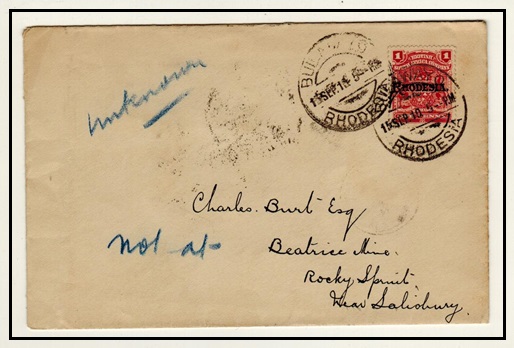 unknown
BULAWAYO
15 SEP 10
RHODESIA
1 1
RHODESIA.
15 SEP 10 PM
RHODESIA
Charles. Burt Esq
not at
Beatrice Mine.
Rocky Spruit.
Near Salisbury.